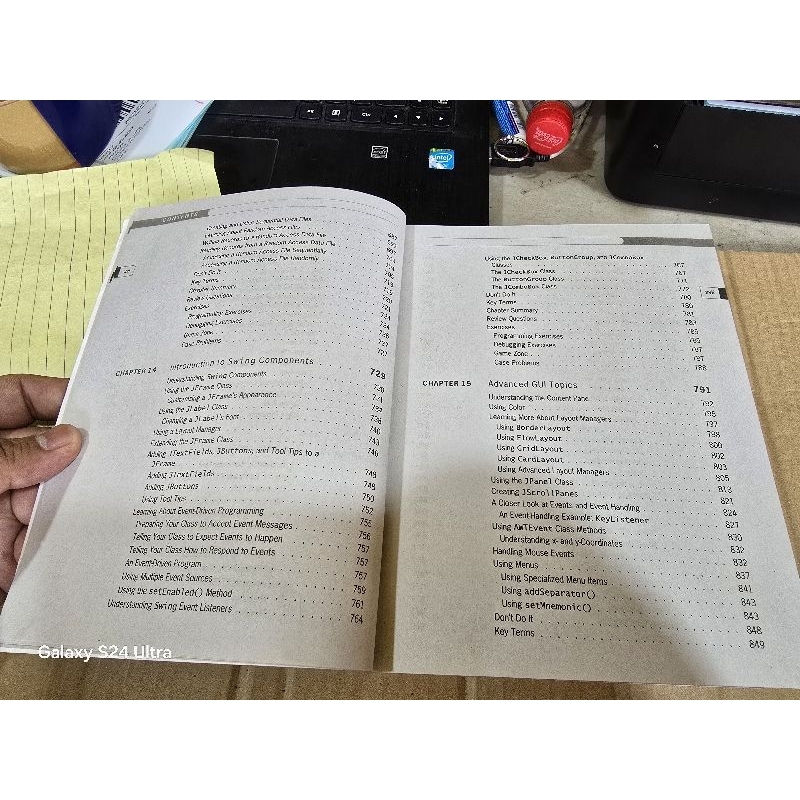 CONTENTS
Learning About Random Access Files
Writing Records to a Random Access Data File
Reading Records from a Random Access Data File
Accessing a Random Access File Sequentially
Accessing a Random Access File Randomly
Don't Do It
Key Terms
Chapter Summary
Review Questions
Exercises
Programming Exercises
Debugging Exercises
Game Zone
Case Problems
CHAPTER 14 Introduction to Swing Components 729
Understanding Swing Components
Using the JFrame Class
Customizing a JFrame's Appearance
Using the JLabel Class
Changing a JLabel's Font
Using a Layout Manager
Extending the JFrame Class
Adding JTextFields, JButtons, and Tool Tips to a
JFrame
Adding JTextFields 748
Adding JButtons 749
Using Tool Tips 750
Learning About Event-Driven Programming 752
Preparing Your Class to Accept Event Messages 755
Telling Your Class to Expect Events to Happen 756
Telling Your Class How to Respond to Events 757
An Event-Driven Program 757
Using Multiple Event Sources 757
Using the setEnabled() Method 759
Understanding Swing Event Listeners 761
764
Using the JCheckBox, ButtonGroup, and JComboBox
Classes 767
The JCheckBox Class 767
The ButtonGroup Class
The JComboBox Class
Don't Do It
Key Terms
Chapter Summary
Review Questions
Exercises
Programming Exercises 785
Debugging Exercises 787
Game Zone 787
Case Problems 788
CHAPTER 15 Advanced GUI Topics 791
Understanding the Content Pane 792
Using Color 795
Learning More About Layout Managers 797
Using BorderLayout 798
Using FlowLayout 800
Using GridLayout 802
Using CardLayout 803
Using Advanced Layout Managers 805
Using the JPanel Class 813
Creating JScrollPanes 821
A Closer Look at Events and Event Handling 824
An Event-Handling Example: KeyListener 827
Using AWTEvent Class Methods 830
Understanding x- and y-Coordinates 832
Handling Mouse Events 832
Using Menus 837
Using Specialized Menu Items 841
Using addSeparator() 843
Using setMnemonic() 843
Don't Do It 848
Key Terms 849
Ctrl
intel
Galaxy S24 Ultra